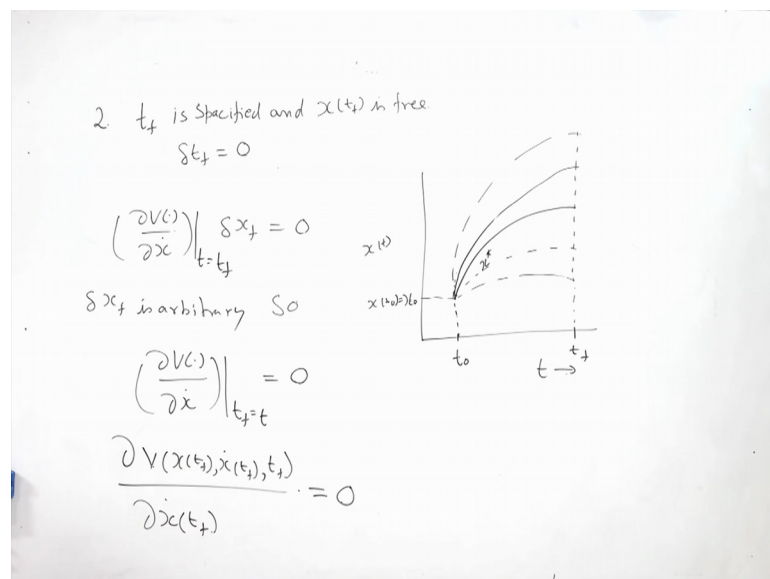 2. t_f is Specified and x(t_f) is free
δt_f = 0
(∂V(·)/∂ẋ)|_{t=t_f} δx_f = 0
δx_f is arbitrary So
(∂V(·)/∂ẋ)|_{t_f=t} = 0
∂V(x(t_f),ẋ(t_f),t_f)/∂ẋ(t_f) · = 0
x(t)
x*
x(t₀)=x₀
t₀
t_f
t →